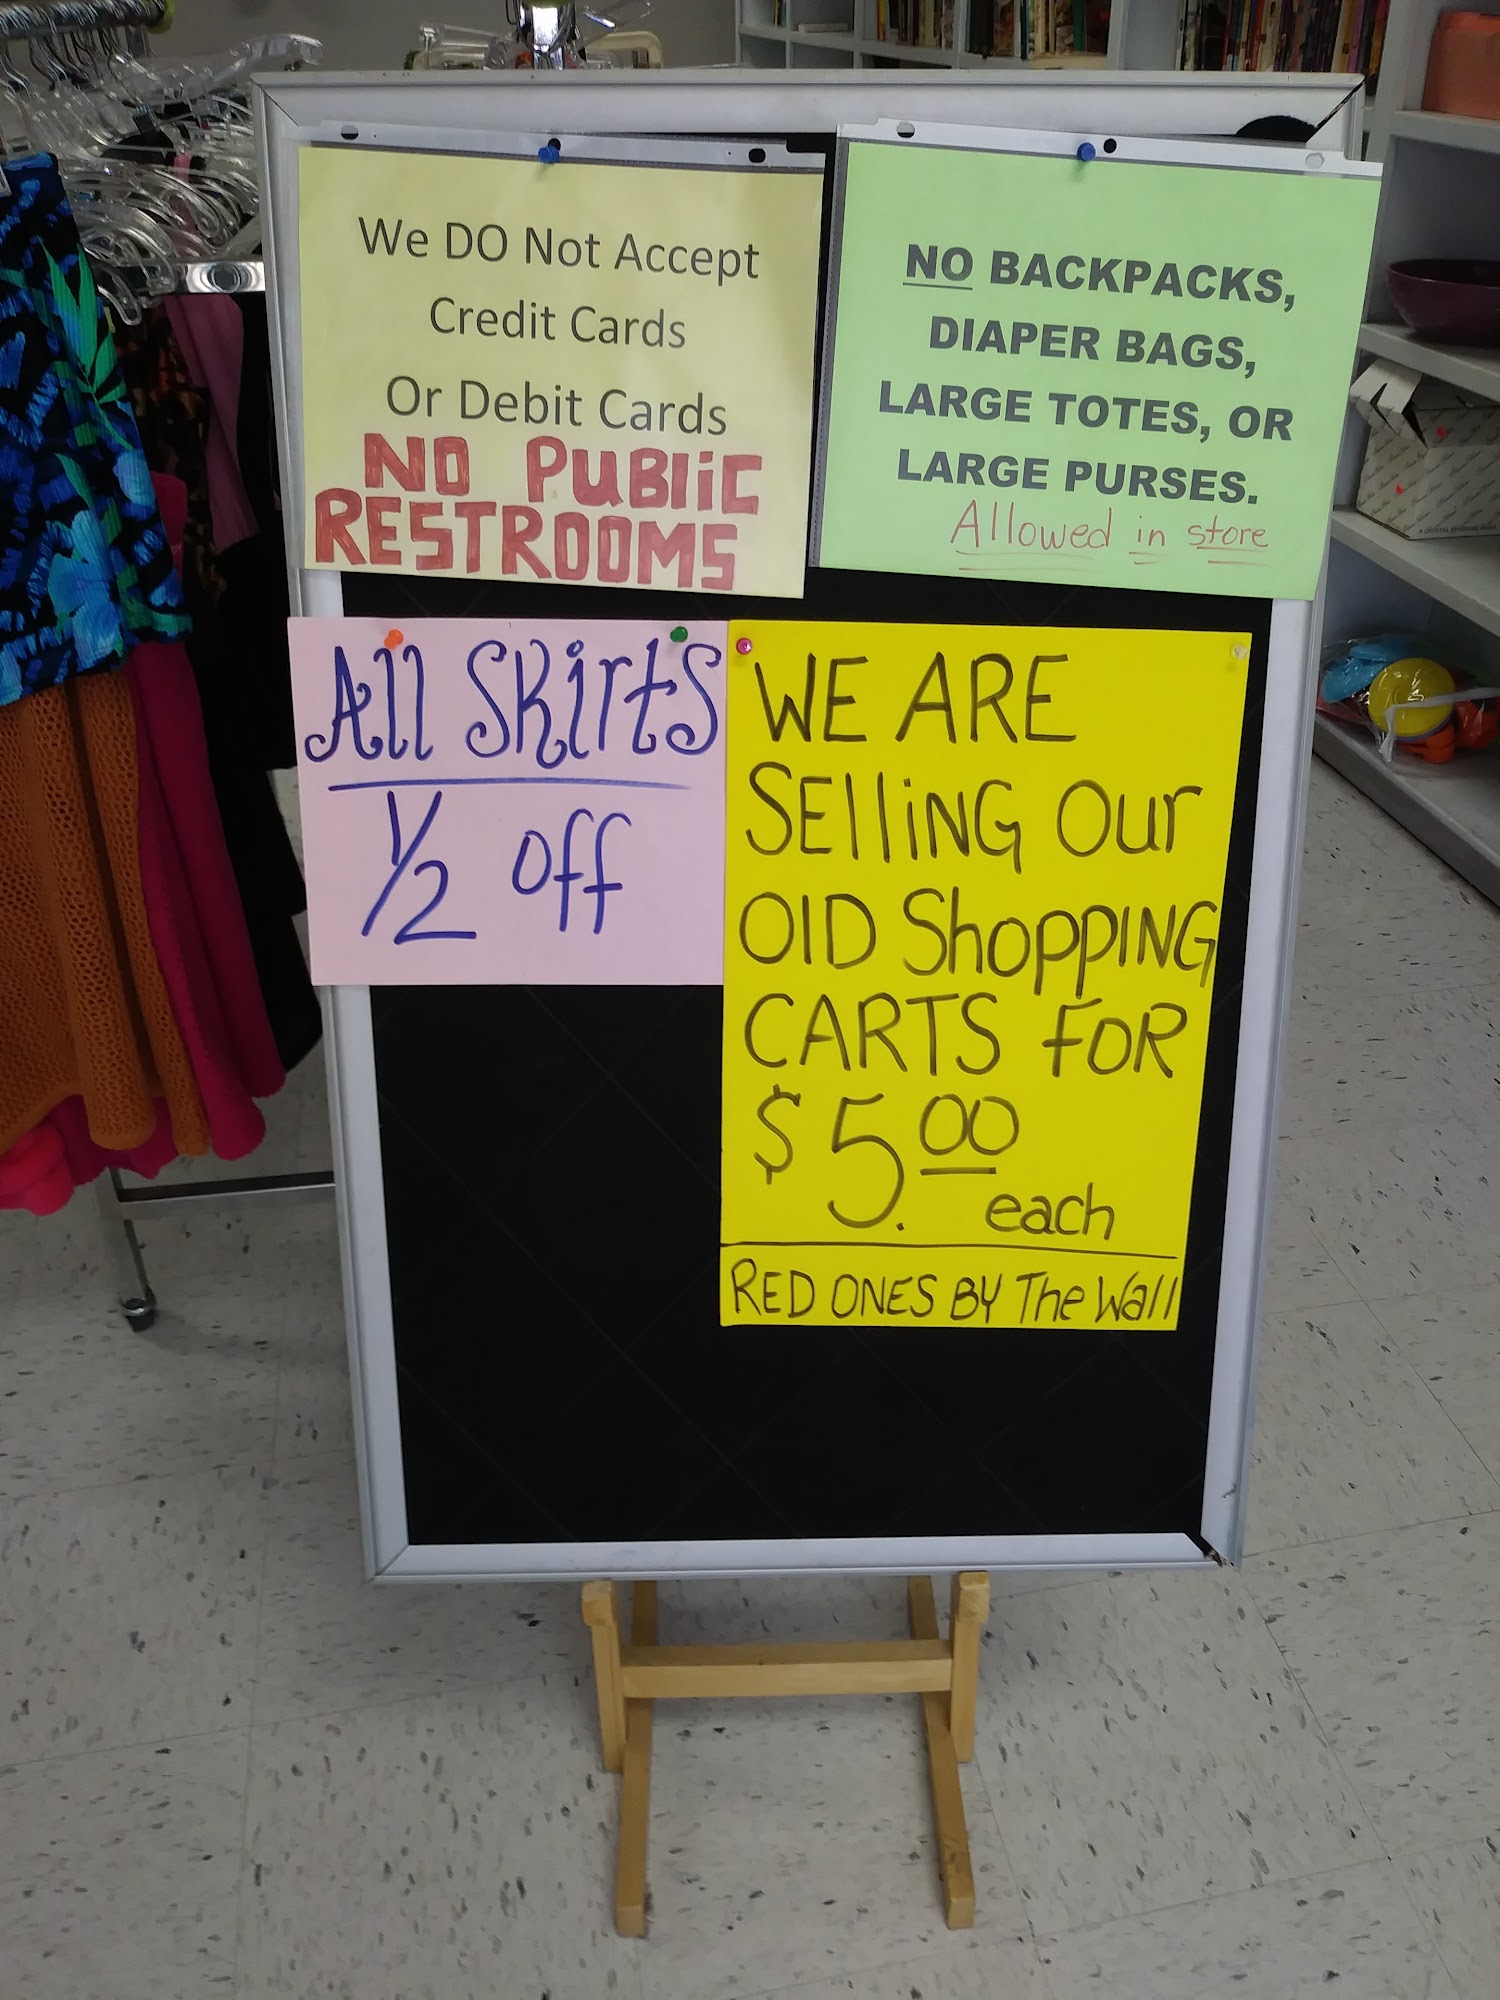 We DO Not Accept
Credit Cards
Or Debit Cards
NO PUBLiC
RESTROOMS
NO BACKPACKS,
DIAPER BAGS,
LARGE TOTES, OR
LARGE PURSES.
Allowed in store
All Skirts
1/2 off
WE ARE
SElliNG Our
OlD ShoppING
CARTS FOR
$5.00
each
RED ONES BY The Wall